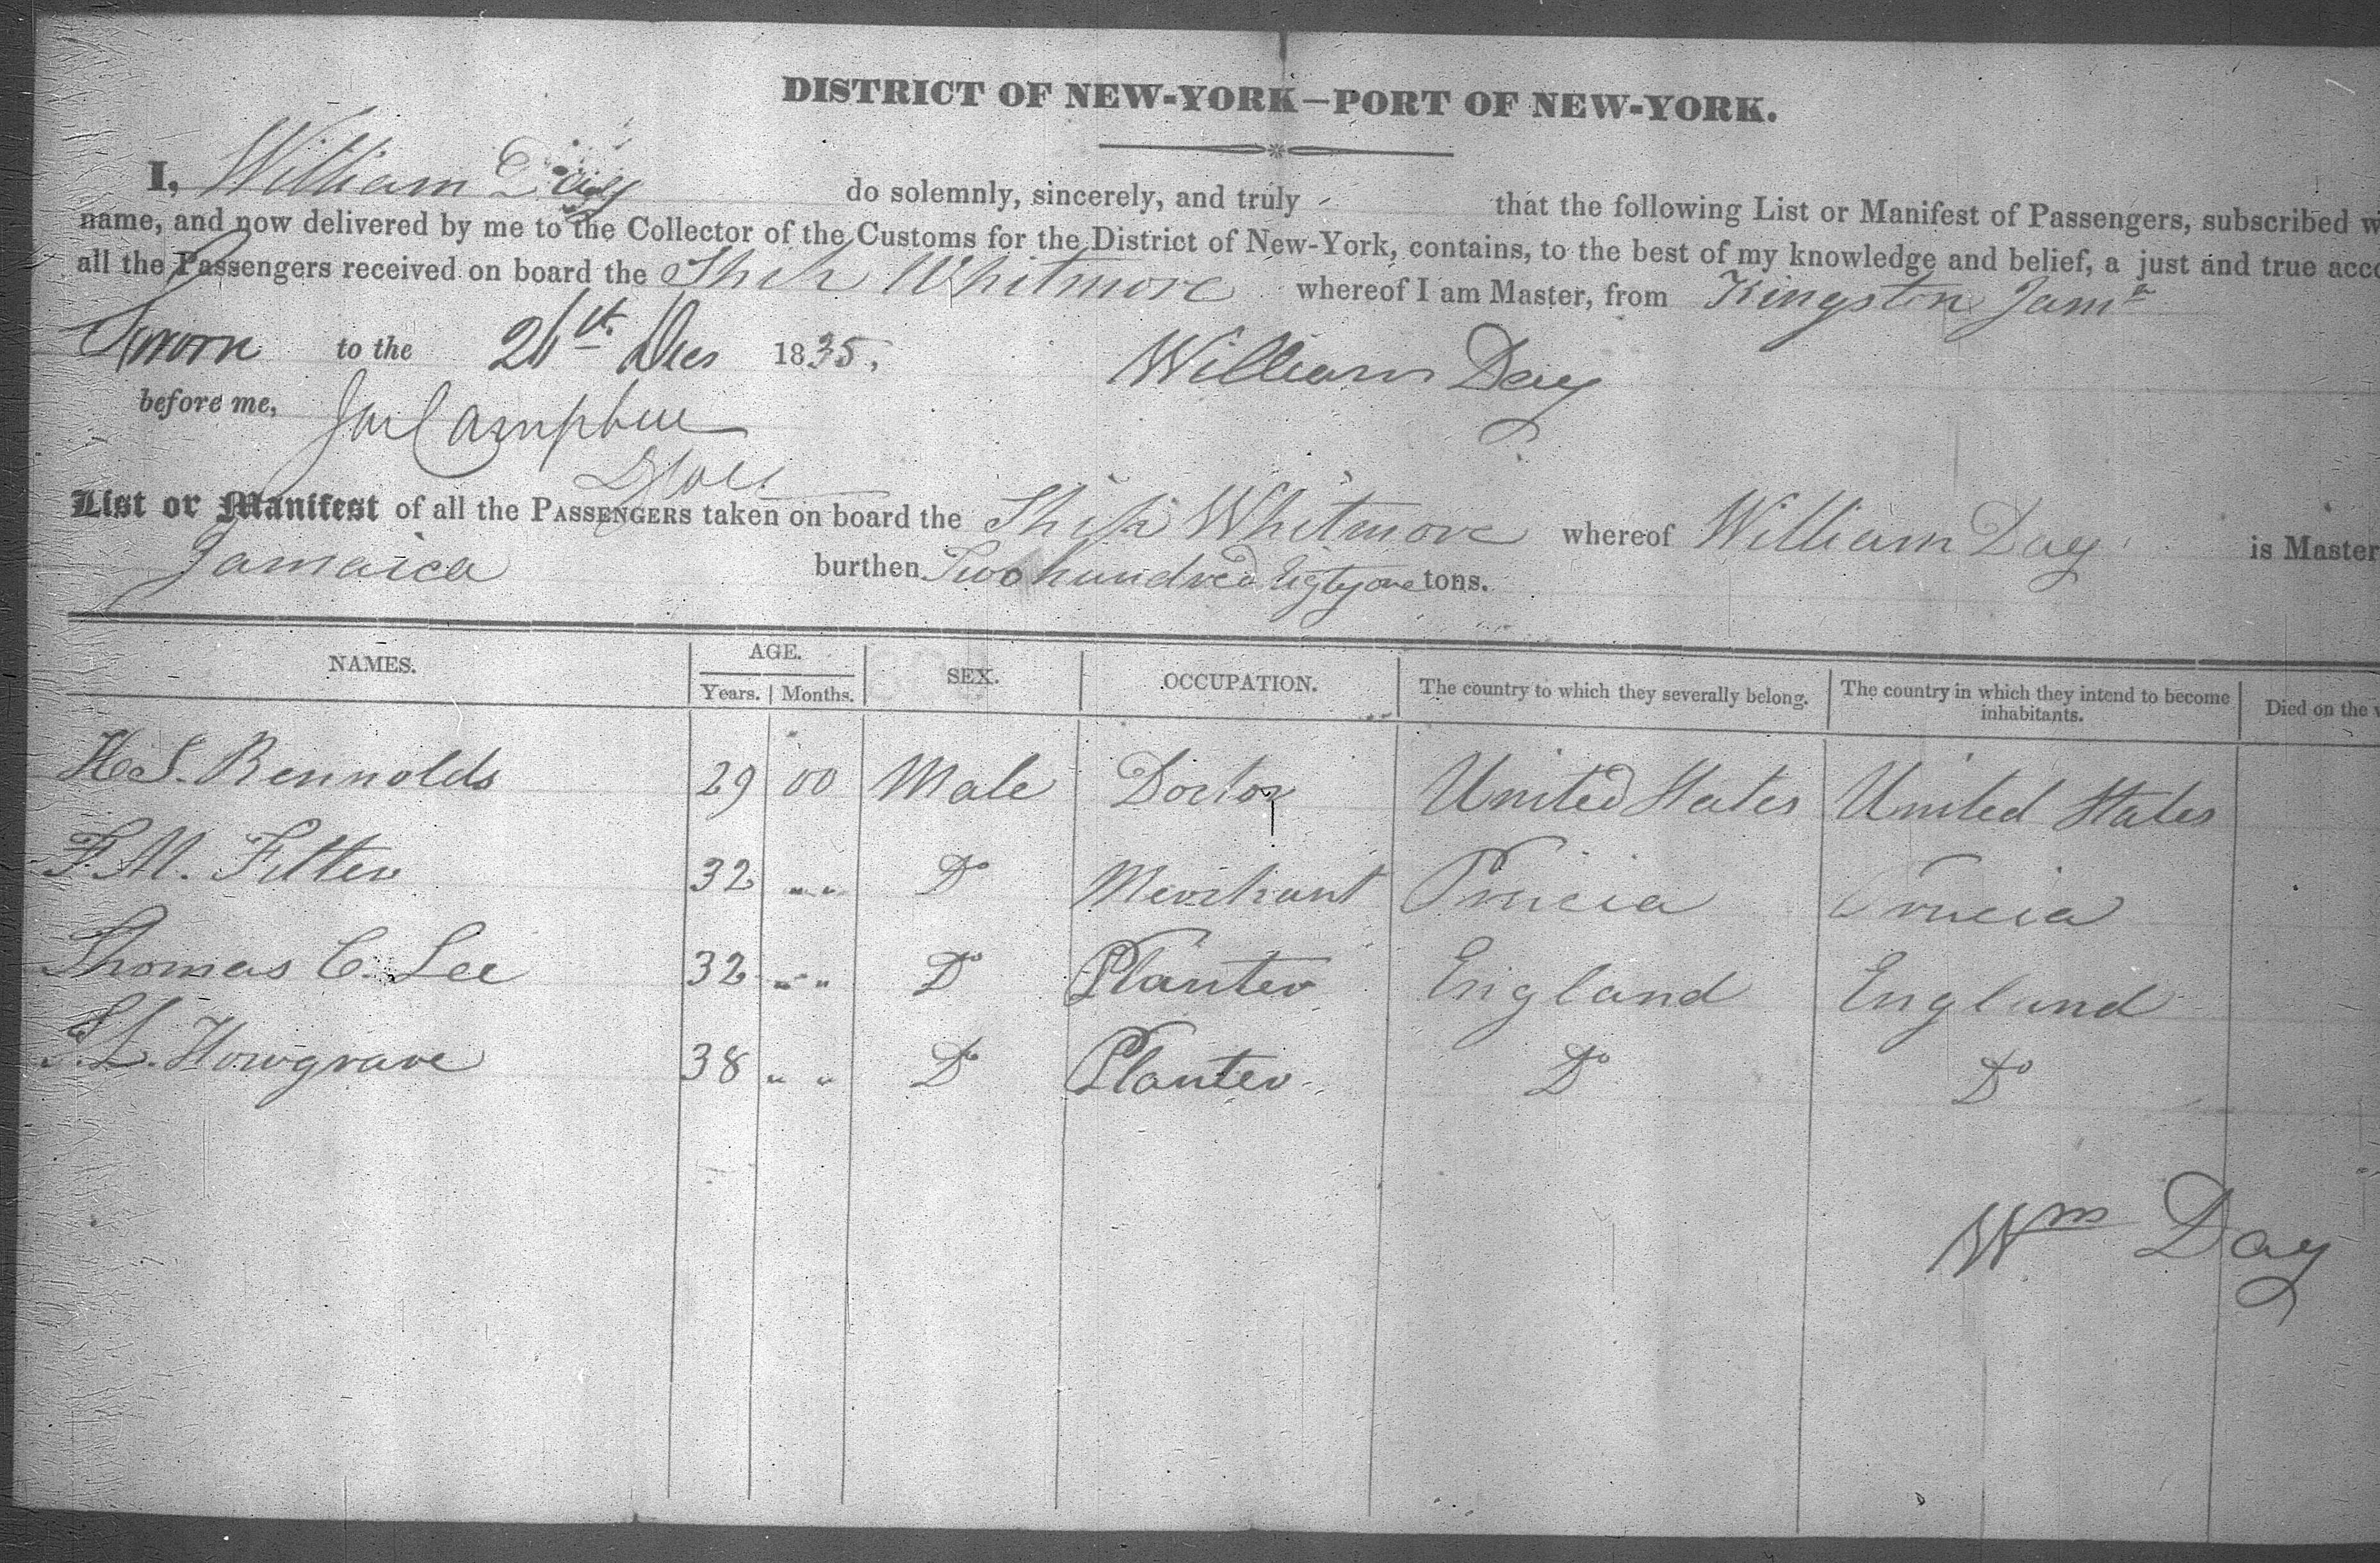 DISTRICT OF NEW-YORK—PORT OF NEW-YORK.
I, William Day do solemnly, sincerely, and truly that the following List or Manifest of Passengers, subscribed w
name, and now delivered by me to the Collector of the Customs for the District of New-York, contains, to the best of my knowledge and belief, a just and true acco
all the Passengers received on board the Ship Whitmore whereof I am Master, from Kingston Jama
Sworn to the 21st Decr 1835. William Day
before me, Campbell
List or Manifest of all the PASSENGERS taken on board the Ship Whitmore whereof William Day is Master
Jamaica burthen Two hundred Eigtyone tons.
NAMES. AGE. SEX. OCCUPATION. The country to which they severally belong. The country in which they intend to become inhabitants. Died on the v
Years. Months.
H.S. Rennolds 29 00 Male Doctor United States United States
F.M. Fitter 32 " " Do Merchant Prucia Prucia
Thomas C. Lee 32 " " Do Planter England England
S.L. Howgrave 38 " " Do Planter Do Do
Wm Day